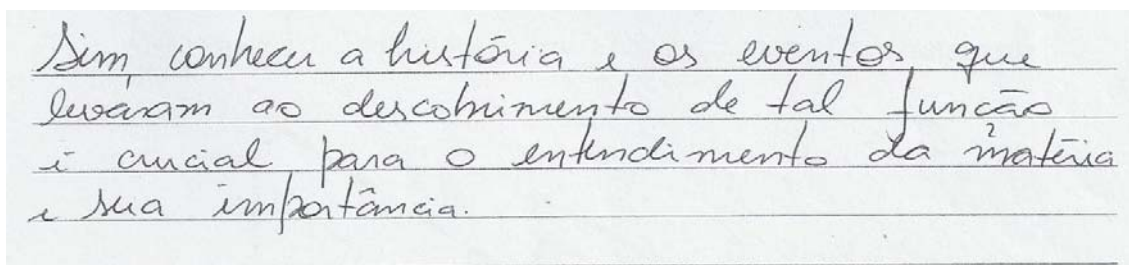 Sim, conhecer a história e os eventos que
levaram ao descobrimento de tal função
é crucial para o entendimento da matéria
e sua importância.